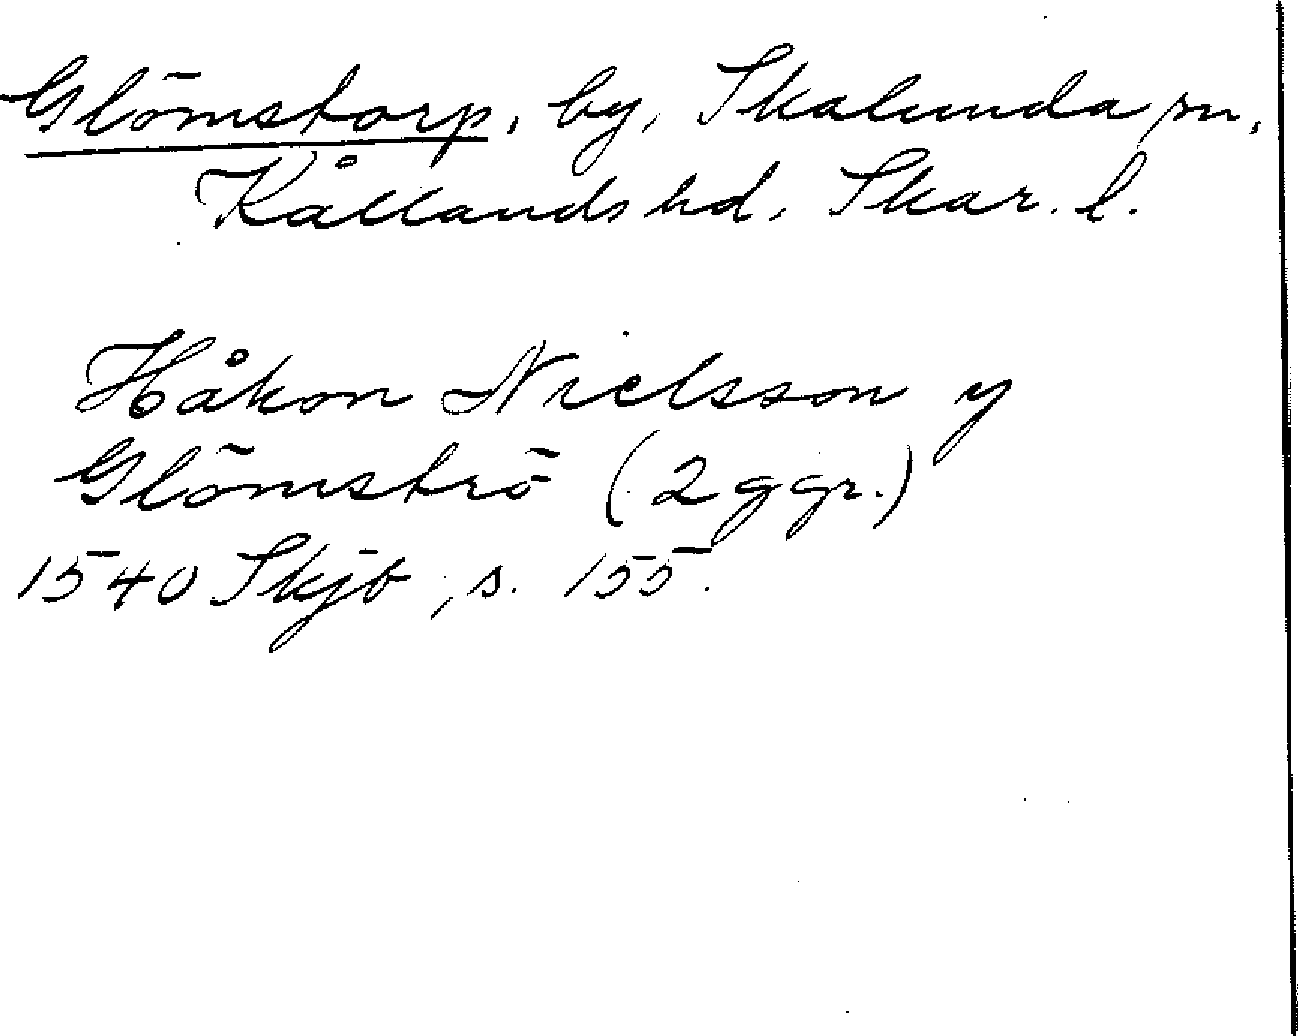 Glömstorp, by, Skalunda sn,
Kållands hd, Skar. l.
Håkon Nielsson y
Glömströ (2 ggr.)
1540 Skjb, s. 155.